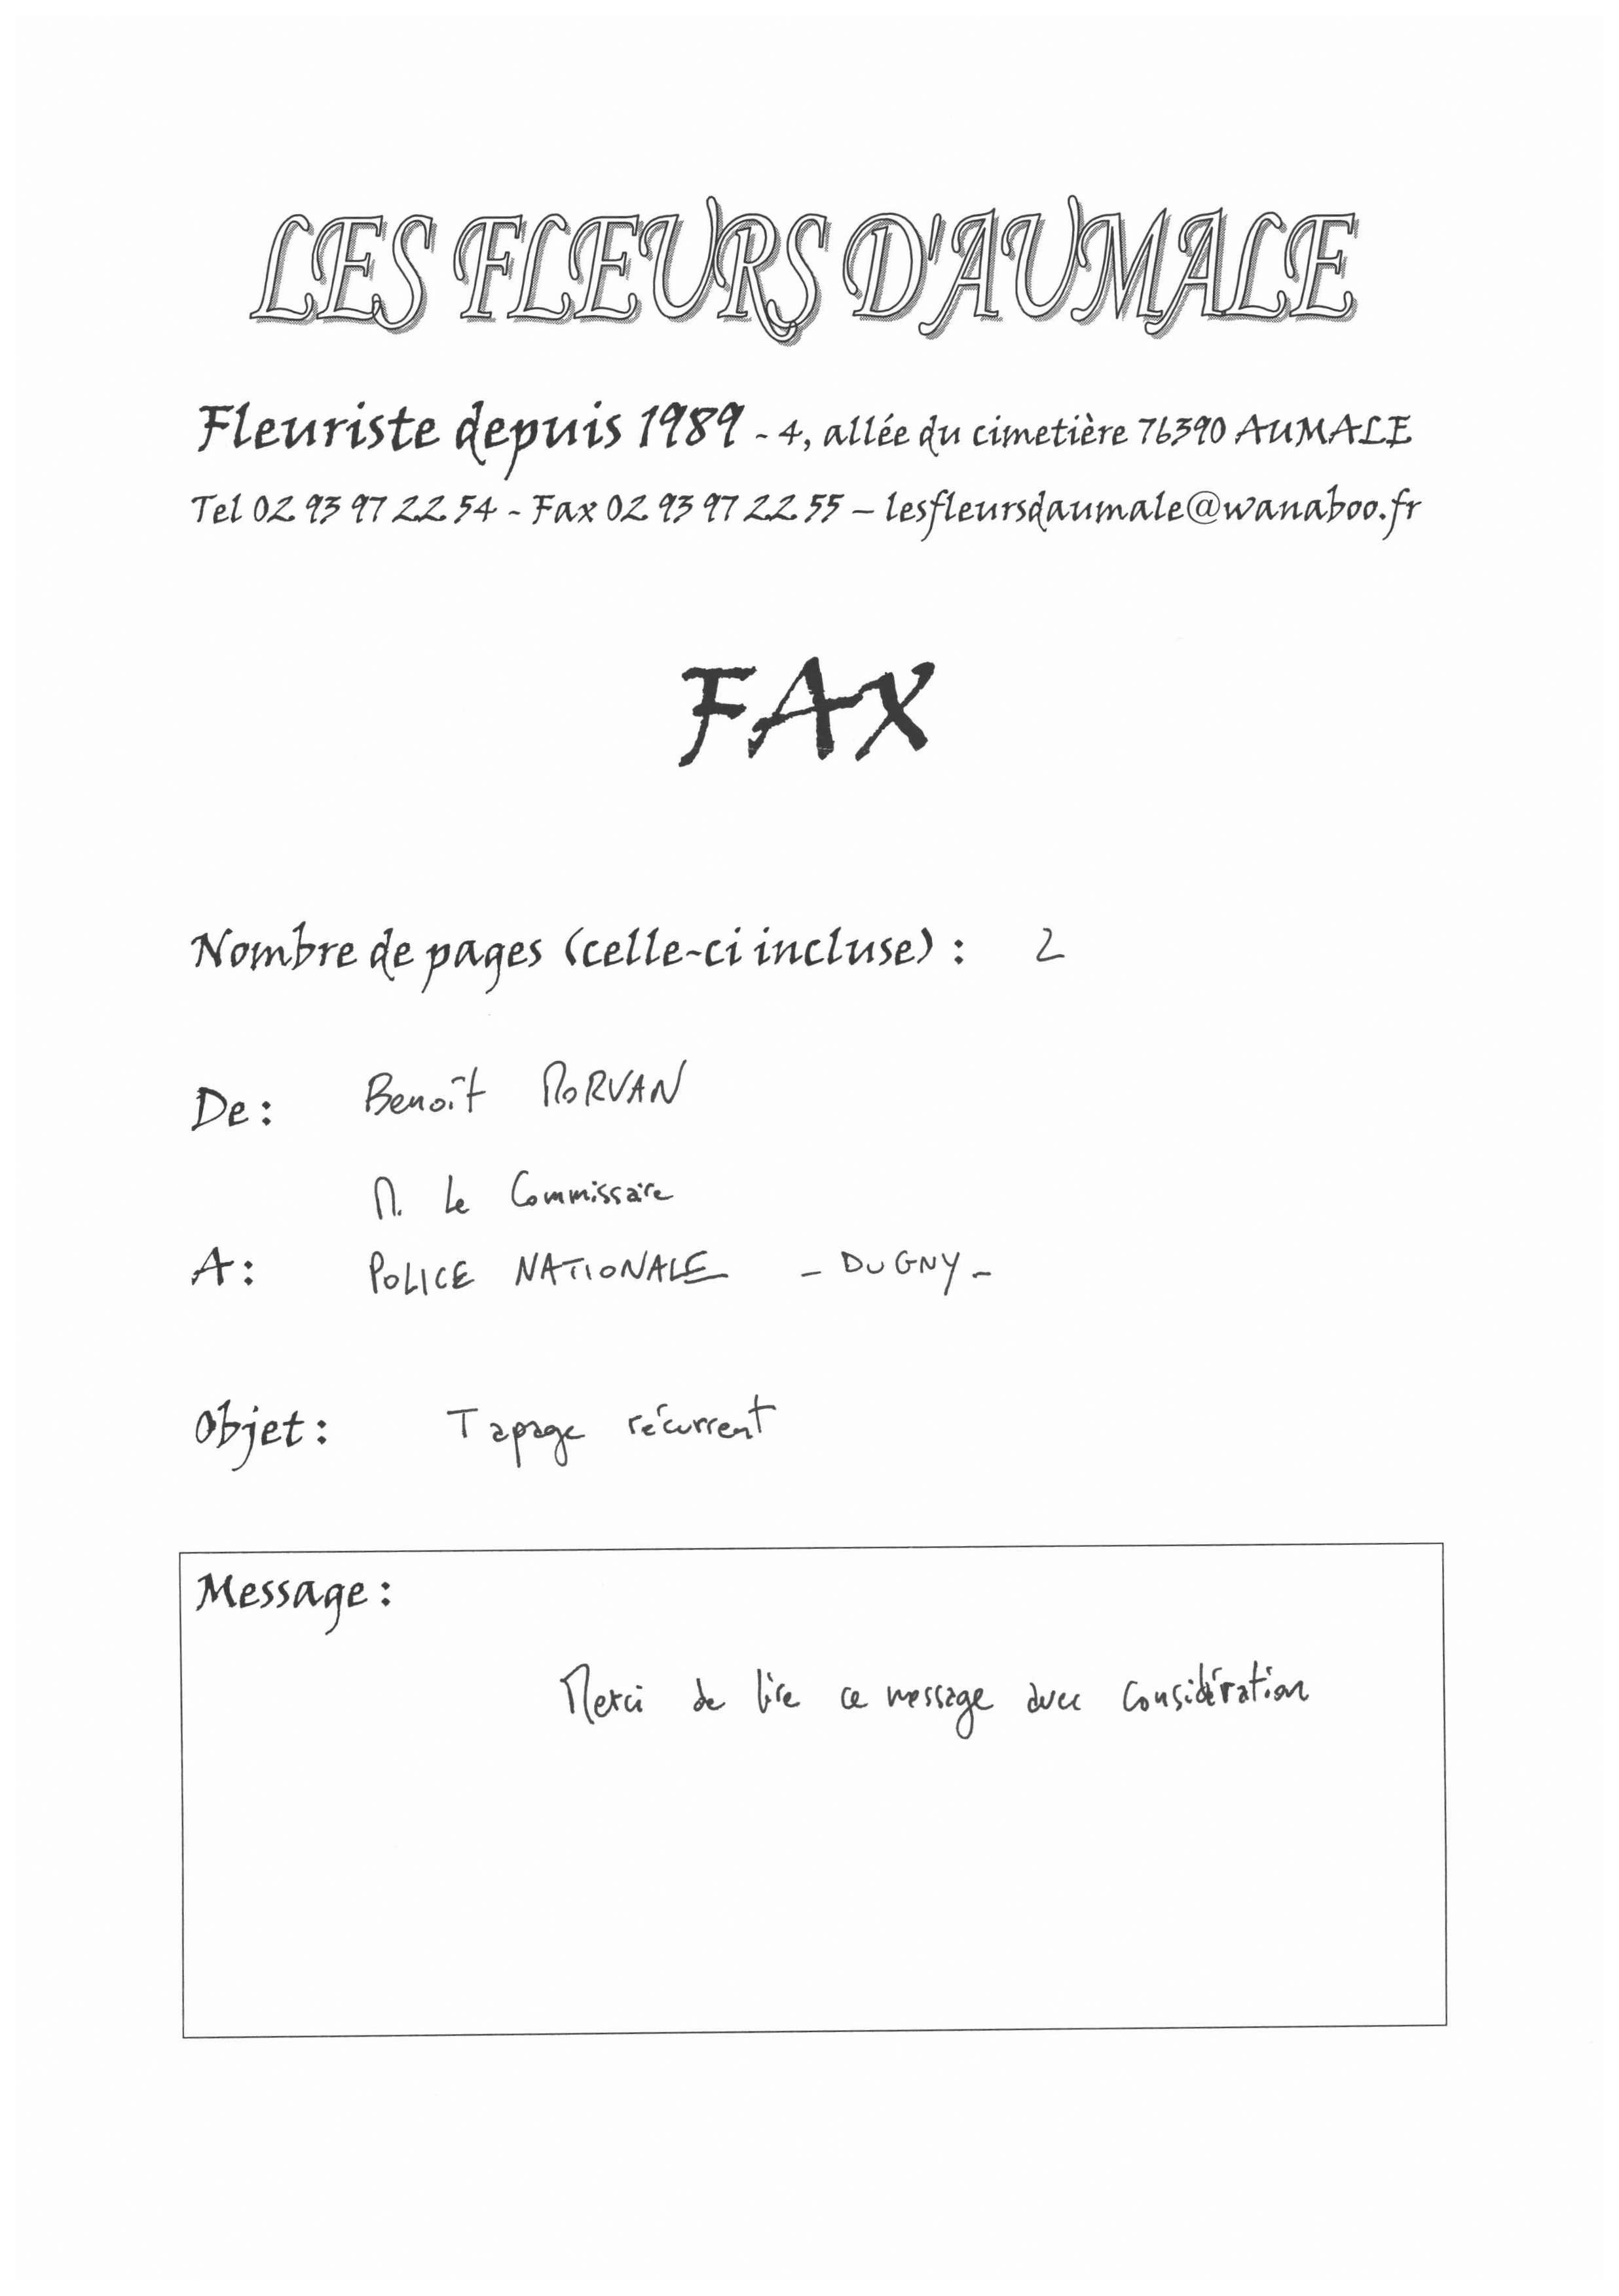 LES FLEURS D'AUMALE
Fleuriste depuis 1989 - 4, allée du cimetière 76390 AUMALE
Tel 02 93 97 22 54 - Fax 02 93 97 22 55 – lesfleursdaumale@wanaboo.fr
FAX
Nombre de pages (celle-ci incluse) : 2
De : Benoît MORVAN
M. Le Commissaire
A : POLICE NATIONALE - DUGNY -
Objet : Tapage récurrent
Message :
Merci de lire ce message avec considération